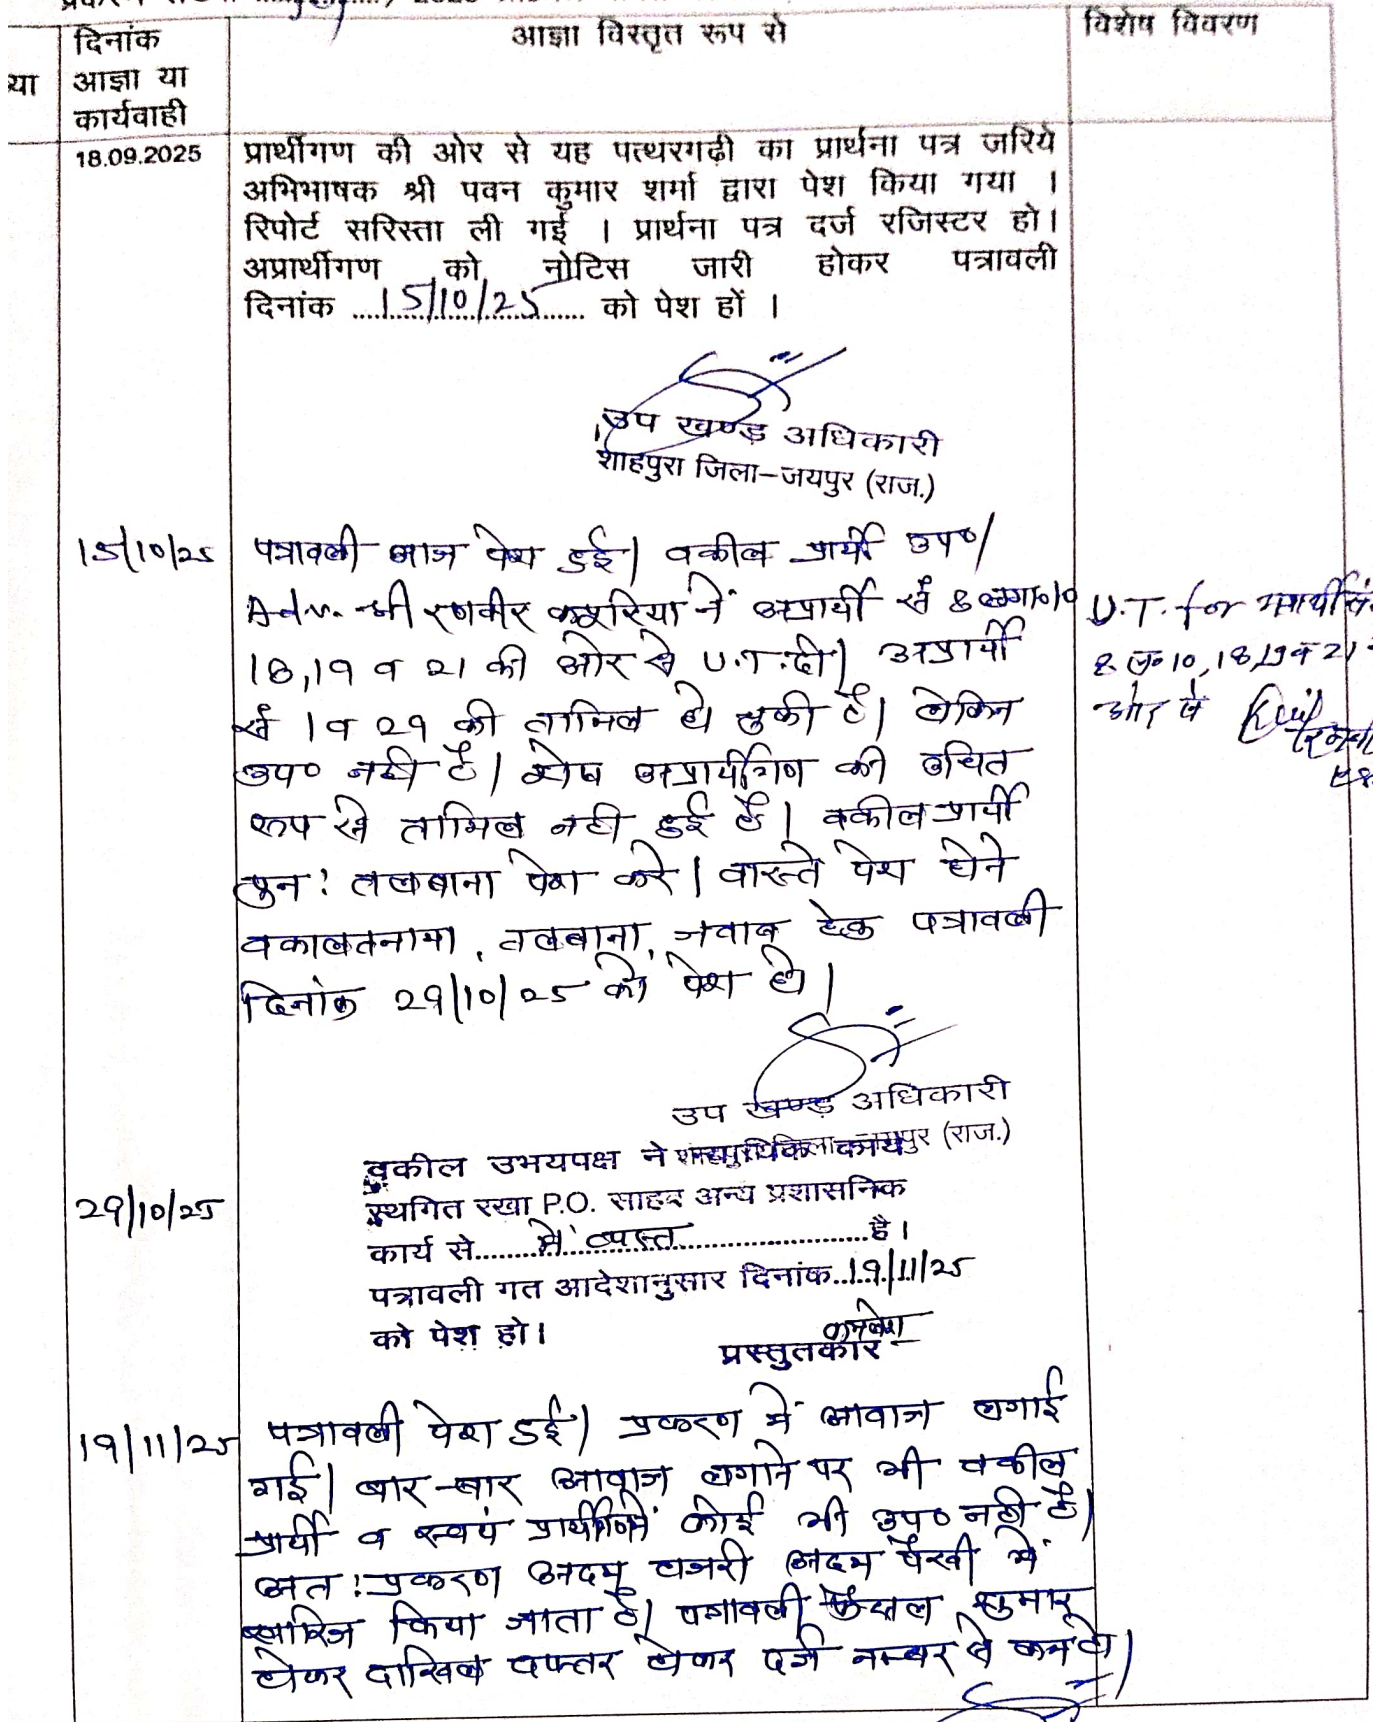 दिनांक
आज्ञा विस्तृत रूप से
विशेष विवरण
या
आज्ञा या
कार्यवाही
18.09.2025
प्रार्थीगण की ओर से यह पत्थरगढी का प्रार्थना पत्र जरिये
अभिभाषक श्री पवन कुमार शर्मा द्वारा पेश किया गया ।
रिपोर्ट सरिस्ता ली गई । प्रार्थना पत्र दर्ज रजिस्टर हो।
अप्रार्थीगण को नोटिस जारी होकर पत्रावली
दिनांक ....15/10/25.... को पेश हों ।
उप खण्ड अधिकारी
शाहपुरा जिला-जयपुर (राज.)
15/10/25
पत्रावली आज पेश हुई। वकील प्रार्थी उप०/
Adv. श्री रणवीर ने अप्रार्थी सं 8 लगा० 10
18, 19 व 21 की ओर से U.T. दी। अप्रार्थी
सं 1 व 29 की तामिल हो चुकी है। लेकिन
उप० नही है। शेष अप्रार्थीगण की उचित
रूप से तामिल नही हुई है। वकील प्रार्थी
पुन: तलबाना पेश करे। वास्ते पेश होने
वकालतनामा, तलबाना, जवाब हेतु पत्रावली
दिनांक 29/10/25 को पेश हो।
U.T. for अप्रार्थी सं
8 10, 18, 19 व 21
ओर से
उप खण्ड अधिकारी
जयपुर (राज.)
29/10/25
वकील उभयपक्ष ने न्यायिक कार्य
स्थगित रखा P.O. साहब अन्य प्रशासनिक
कार्य से.......में व्यस्त.......है।
पत्रावली गत आदेशानुसार दिनांक..19/11/25
को पेश हो।
प्रस्तुतकार
19/11/25
पत्रावली पेश हुई। प्रकरण में आवाज लगाई
गई। बार-बार आवाज लगाने पर भी वकील
प्रार्थी व स्वयं प्रार्थीगण में कोई भी उप० नही है।
अत: प्रकरण अदम हाजरी अदम पैरवी में
खारिज किया जाता है। पत्रावली फैसल शुमार
होकर दाखिल दफ्तर होकर दर्ज नम्बर से कम हो।